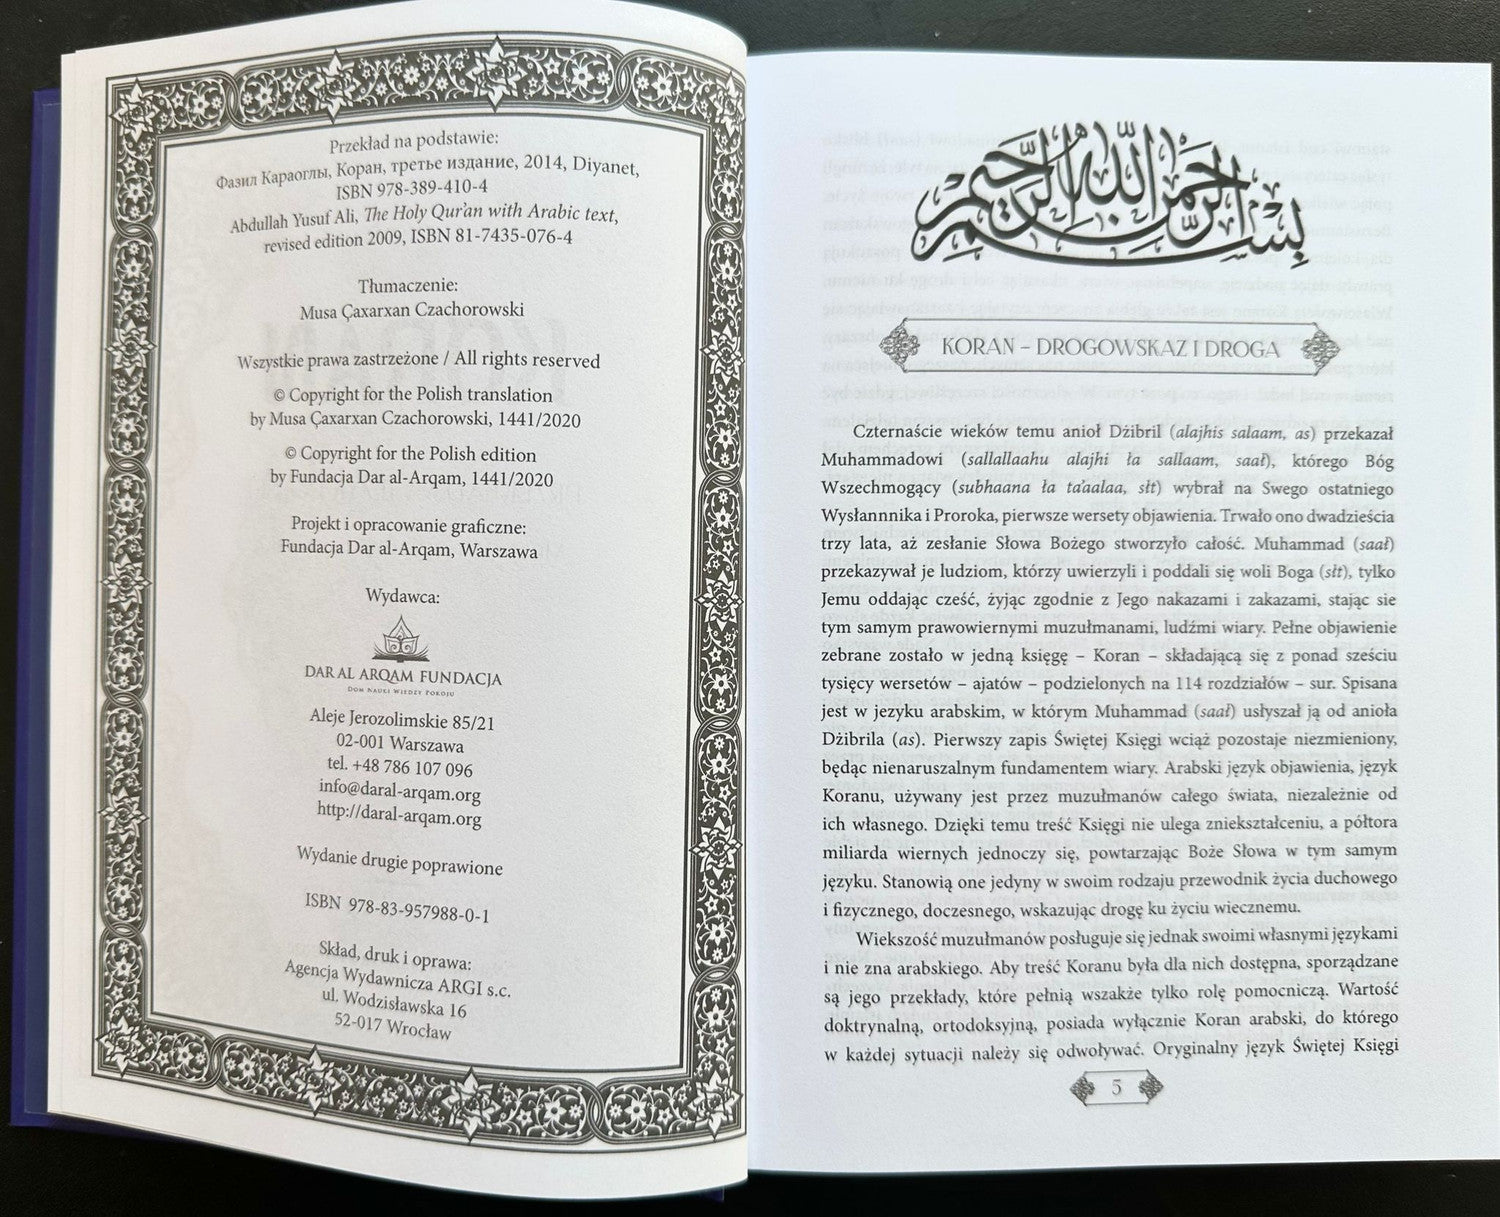 Przekład na podstawie:
Фазил Караоглы, Коран, третье издание, 2014, Diyanet,
ISBN 978-389-410-4
Abdullah Yusuf Ali, The Holy Qur'an with Arabic text,
revised edition 2009, ISBN 81-7435-076-4
Tłumaczenie:
Musa Çaxarxan Czachorowski
Wszystkie prawa zastrzeżone / All rights reserved
© Copyright for the Polish translation
by Musa Çaxarxan Czachorowski, 1441/2020
© Copyright for the Polish edition
by Fundacja Dar al-Arqam, 1441/2020
Projekt i opracowanie graficzne:
Fundacja Dar al-Arqam, Warszawa
Wydawca:
DAR AL ARQAM FUNDACJA
DOM NAUKI WIEDZY POKOJU
Aleje Jerozolimskie 85/21
02-001 Warszawa
tel. +48 786 107 096
info@daral-arqam.org
http://daral-arqam.org
Wydanie drugie poprawione
ISBN 978-83-957988-0-1
Skład, druk i oprawa:
Agencja Wydawnicza ARGI s.c.
ul. Wodzisławska 16
52-017 Wrocław
بِسْمِ اللهِ الرَّحْمٰنِ الرَّحِيمِ
KORAN – DROGOWSKAZ I DROGA
Czternaście wieków temu anioł Dżibril (alajhis salaam, as) przekazał
Muhammadowi (sallallaahu alajhi ła sallaam, saał), którego Bóg
Wszechmogący (subhaana ła ta'aalaa, słt) wybrał na Swego ostatniego
Wysłannnika i Proroka, pierwsze wersety objawienia. Trwało ono dwadzieścia
trzy lata, aż zesłanie Słowa Bożego stworzyło całość. Muhammad (saał)
przekazywał je ludziom, którzy uwierzyli i poddali się woli Boga (słt), tylko
Jemu oddając cześć, żyjąc zgodnie z Jego nakazami i zakazami, stając sie
tym samym prawowiernymi muzułmanami, ludźmi wiary. Pełne objawienie
zebrane zostało w jedną księgę – Koran – składającą się z ponad sześciu
tysięcy wersetów – ajatów – podzielonych na 114 rozdziałów – sur. Spisana
jest w jezyku arabskim, w którym Muhammad (saał) usłyszał ją od anioła
Dżibrila (as). Pierwszy zapis Świętej Księgi wciąż pozostaje niezmieniony,
będąc nienaruszalnym fundamentem wiary. Arabski język objawienia, język
Koranu, używany jest przez muzułmanów całego świata, niezależnie od
ich własnego. Dzięki temu treść Księgi nie ulega zniekształceniu, a półtora
miliarda wiernych jednoczy się, powtarzając Boże Słowa w tym samym
języku. Stanowią one jedyny w swoim rodzaju przewodnik życia duchowego
i fizycznego, doczesnego, wskazując drogę ku życiu wiecznemu.
Wiekszość muzułmanów posługuje się jednak swoimi własnymi językami
i nie zna arabskiego. Aby treść Koranu była dla nich dostępna, sporządzane
są jego przekłady, które pełnią wszakże tylko rolę pomocniczą. Wartość
doktrynalną, ortodoksyjną, posiada wyłącznie Koran arabski, do którego
w każdej sytuacji należy się odwoływać. Oryginalny język Świętej Księgi
5